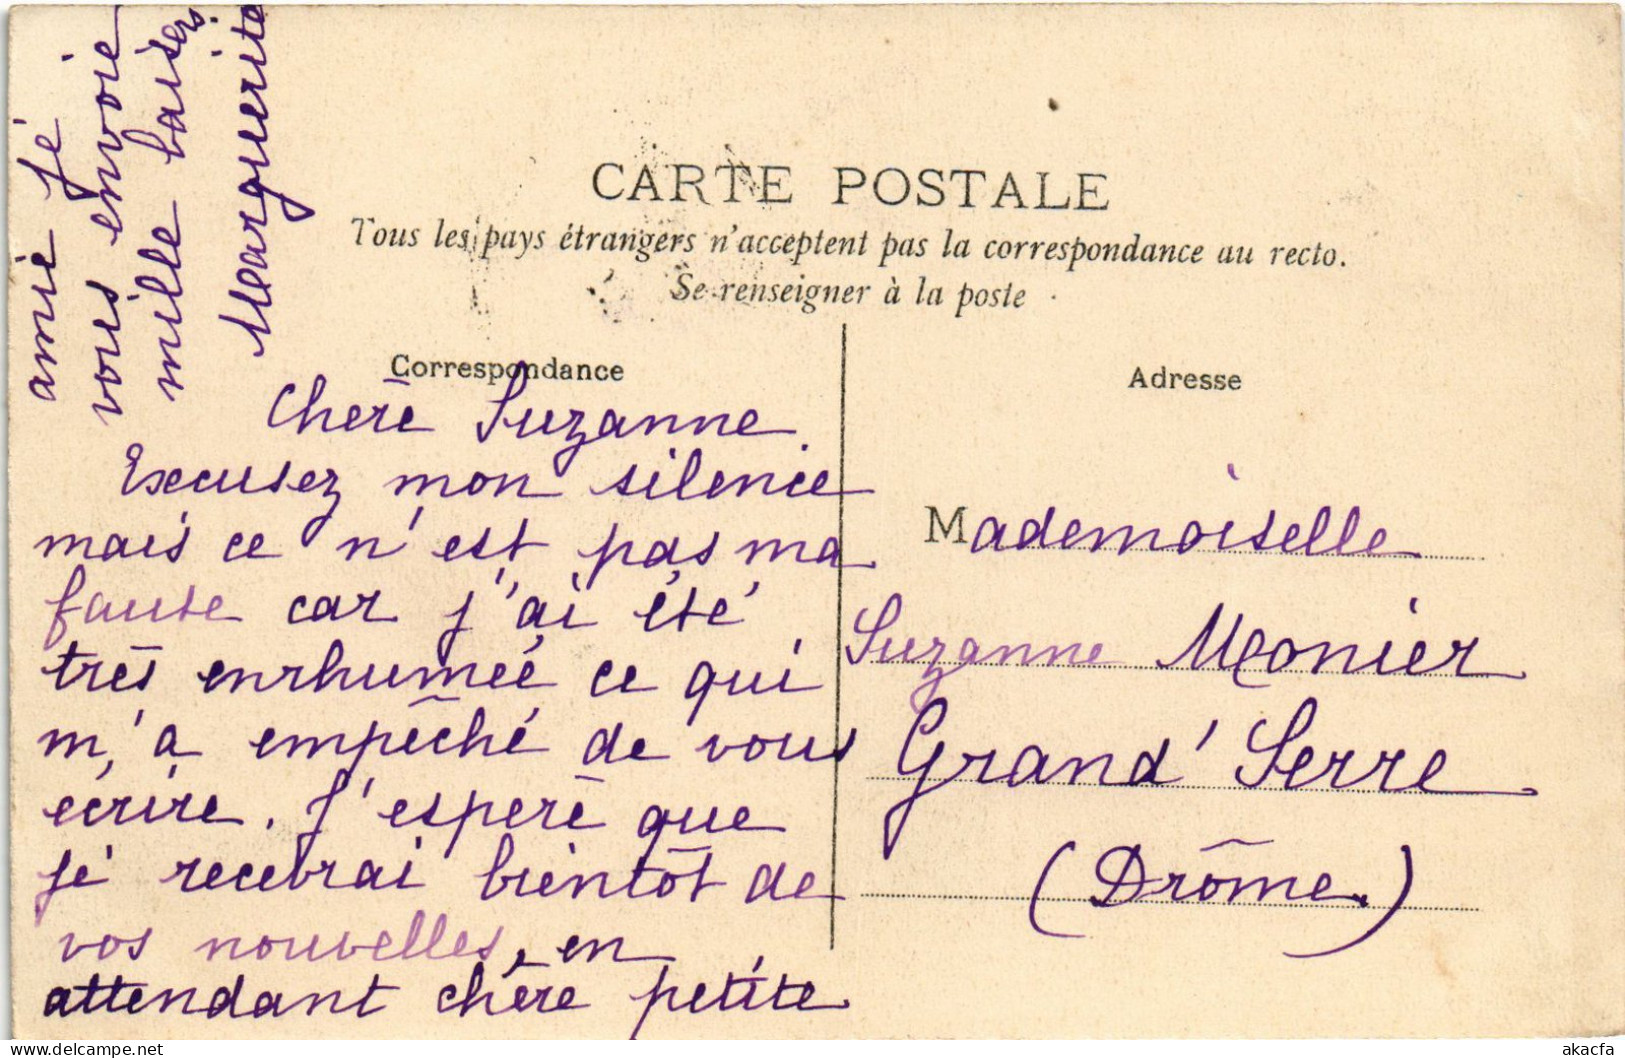 CARTE POSTALE
Tous les pays étrangers n'acceptent pas la correspondance au recto.
Se renseigner à la poste
Correspondance
Chère Suzanne
Excusez mon silence
mais ce n'est pas ma
faute car j'ai été
très enrhumée ce qui
m'a empêché de vous
écrire. J'espère que
je recevrai bientôt de
vos nouvelles, en
attendant chère petite
amie je
vous envoie
mille baisers
Marguerite
Adresse
Mademoiselle
Suzanne Monier
Grand' Serre
(Drôme.)
akacfa